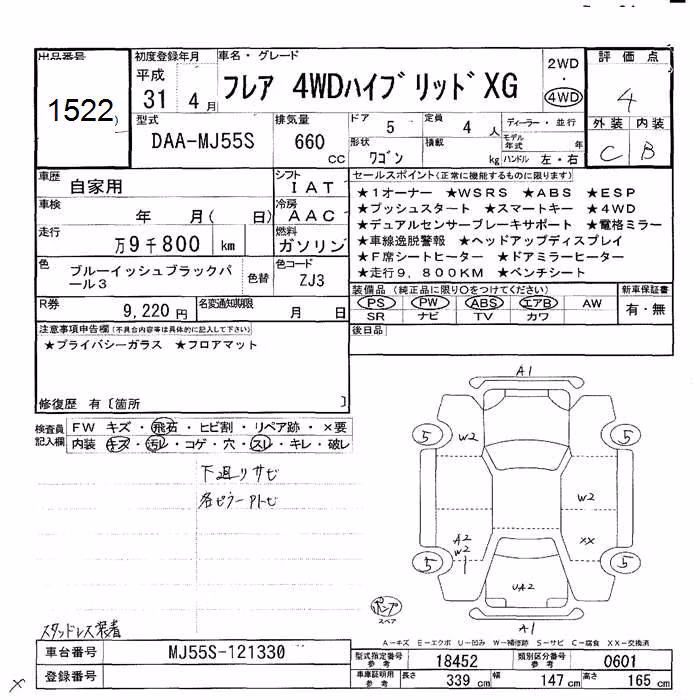 出品番号
1522
初度登録年月
平成
31 4月
車名・グレード
フレア 4WDハイブリッドXG
2WD
・
4WD
評価点
4
外装 内装
C B
型式
DAA-MJ55S
排気量
660
cc
ドア 5
定員 4 人
形状 ワゴン
積載 kg
ディーラー・並行
モデル年式 年
ハンドル 左・右
車歴
自家用
シフト
IAT
車検
年 月( 日)
冷房
AAC
走行
万9千800 km
燃料
ガソリン
色
ブルーイッシュブラックパール3
色替
色コード
ZJ3
R券
9,220円
名変通知期限
月 日
セールスポイント(正常に機能するものに限ります)
★1オーナー ★WSRS ★ABS ★ESP
★プッシュスタート ★スマートキー ★4WD
★デュアルセンサーブレーキサポート ★電格ミラー
★車線逸脱警報 ★ヘッドアップディスプレイ
★F席シートヒーター ★ドアミラーヒーター
★走行9,800KM ★ベンチシート
装備品(純正品に限り○をつけてください)
新車保証書
PS PW ABS エアB AW
SR ナビ TV カワ
有・無
後日品
注意事項申告欄(不具合内容等は具体的に記入して下さい)
★プライバシーガラス ★フロアマット
修復歴 有〔箇所 〕
検査員記入欄
FW キズ・飛石・ヒビ割・リペア跡・×要
内装 キズ・汚レ・コゲ・穴・スレ・キレ・破レ
下廻リサビ
各ピラーアトビ
スタッドレス装着
A1
5
W2
5
W2
A2
W2
XX
5
5
UA2
A1
スペア
A-キズ E-エクボ U-凹み W-補修跡 S-サビ C-腐食 XX-交換済
車台番号
MJ55S-121330
登録番号
型式指定番号
参考
18452
類別区分番号
参考
0601
車庫証明用
参考
長さ 339 cm 幅 147 cm 高さ 165 cm
×